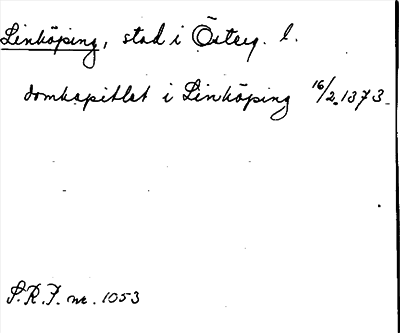 Linköping, stad i Österg. l.
domkapitlet i Linköping 16/2 1373.
S.R.P. nr. 1053